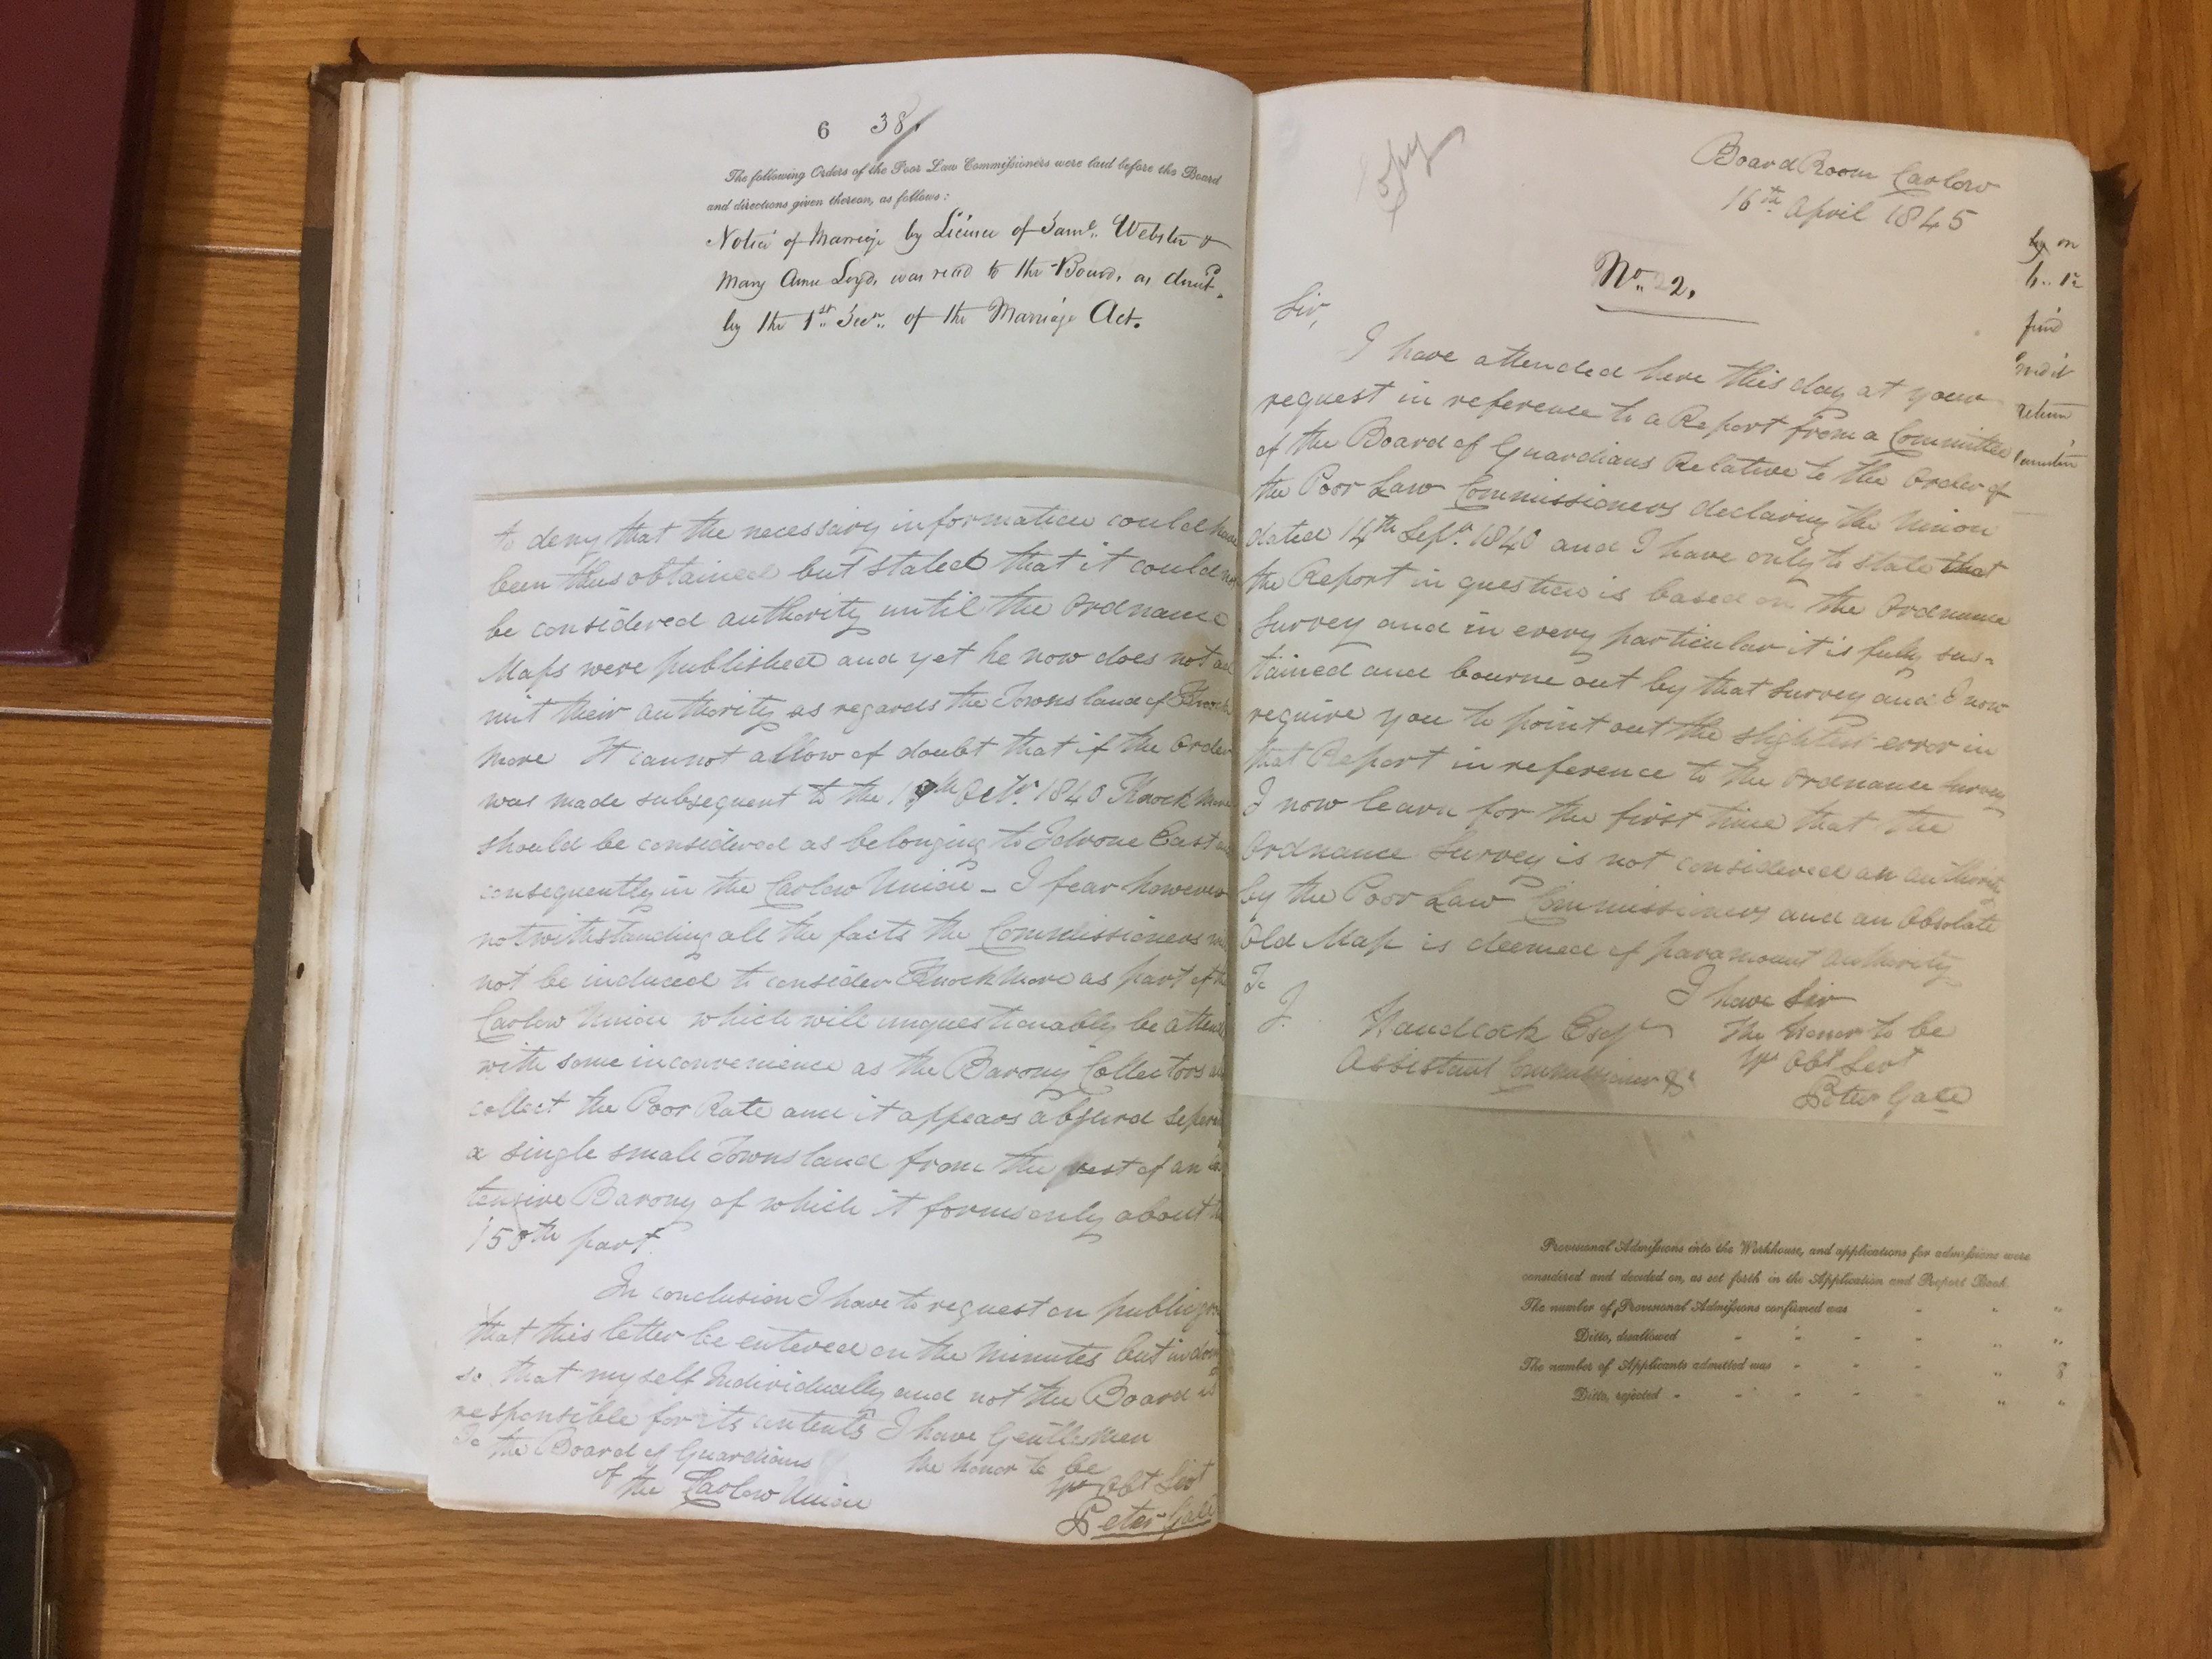 6 38
The following Orders of the Poor Law Commissioners were laid before the Board
and directions given thereon, as follows:
Notice of Marriage by Licence of Saml. Webster &
Mary Anne Loyd, was read to the Board, as direct.d
by the 1st Secn. of the Marriage Act.
to deny that the necessary information could have
been thus obtained but stated that it could not
be considered authority until the Ordnance
Maps were published and yet he now does not ad
mit their authority as regards the Townsland of Knock
more It cannot allow of doubt that if the Order
was made subsequent to the Octr. 1840 Knockmore
should be considered as belonging to Idrone East
consequently in the Carlow Union – I fear however
notwithstanding all the facts the Commissioners
not be induced to consider Knockmore as part of the
Carlow Union which will unquestionably be
with some inconvenience as the Barony Collectors
collect the Poor Rate and it appears absurd
a single small Townsland from the rest of an
tensive Barony of which it forms only about
150th part.
In conclusion I have to request on public
that this letter be entered on the Minutes but in
so that myself Individually and not the Board is
responsible for its contents I have Gentlemen
To the Board of Guardians the honor to be
of the Carlow Union Yr Obt Servt
Peter Gale
Copy
Board Room Carlow
16th April 1845
No. 2.
Sir,
I have attended here this day at your
request in reference to a Report from a Committee
of the Board of Guardians Relative to the Order of
the Poor Law Commissioners declaring the Union
dated 14th Sepr. 1840 and I have only to state that
the Report in question is based on the Ordnance
Survey and in every particular it is fully sus-
tained and bourne out by that Survey and I now
require you to point out the slightest error in
that Report in reference to the Ordnance Survey
I now learn for the first time that the
Ordnance Survey is not considered an authority
by the Poor Law Commissioners and an Obsolate
Old Map is deemed of paramount authority
To
I have Sir
J. Handcock Esqr The Honor to be
Assistant Commissioner &c Yr Obt Servt
Peter Gale
by on
fund
return
Provisional Admissions into the Workhouse, and applications for admissions were
considered and decided on, as set forth in the Application and Report Book
The number of Provisional Admissions confirmed was - " "
Ditto, disallowed - - - - " "
The number of Applicants admitted was - - - " 8
Ditto, rejected - - - - " "